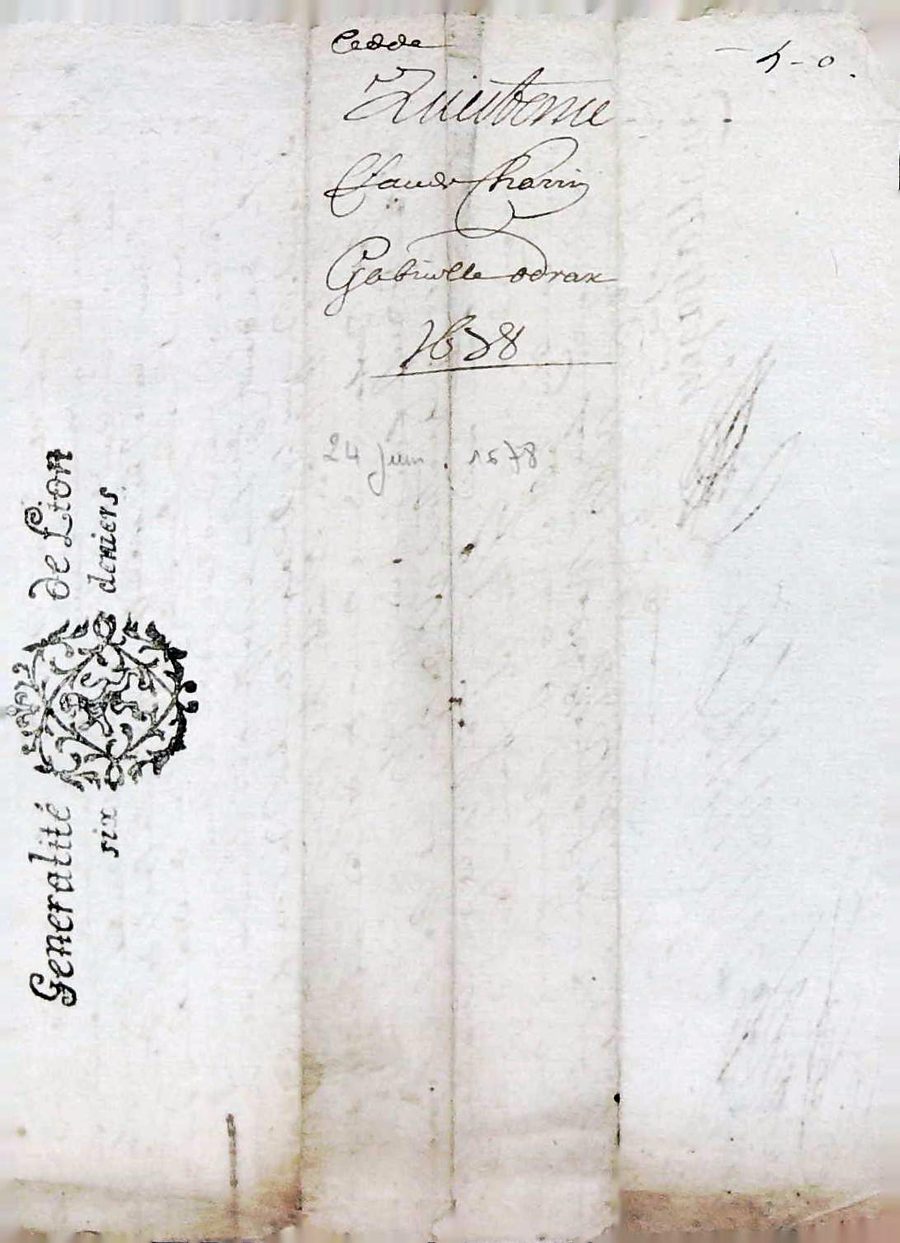 Cedde
Claude Charrin
Gabrielle odrax
1678
24 Juin 1678
Generalité de Lion
six deniers